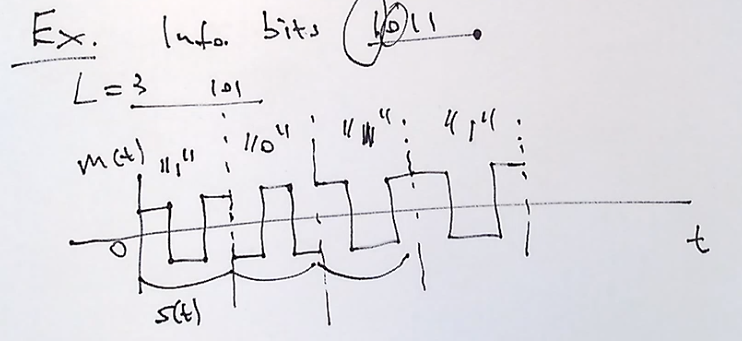 Ex. Info. bits 1011
L=3 101
"1" "0" "1" "1"
m(t)
0 t
s(t)